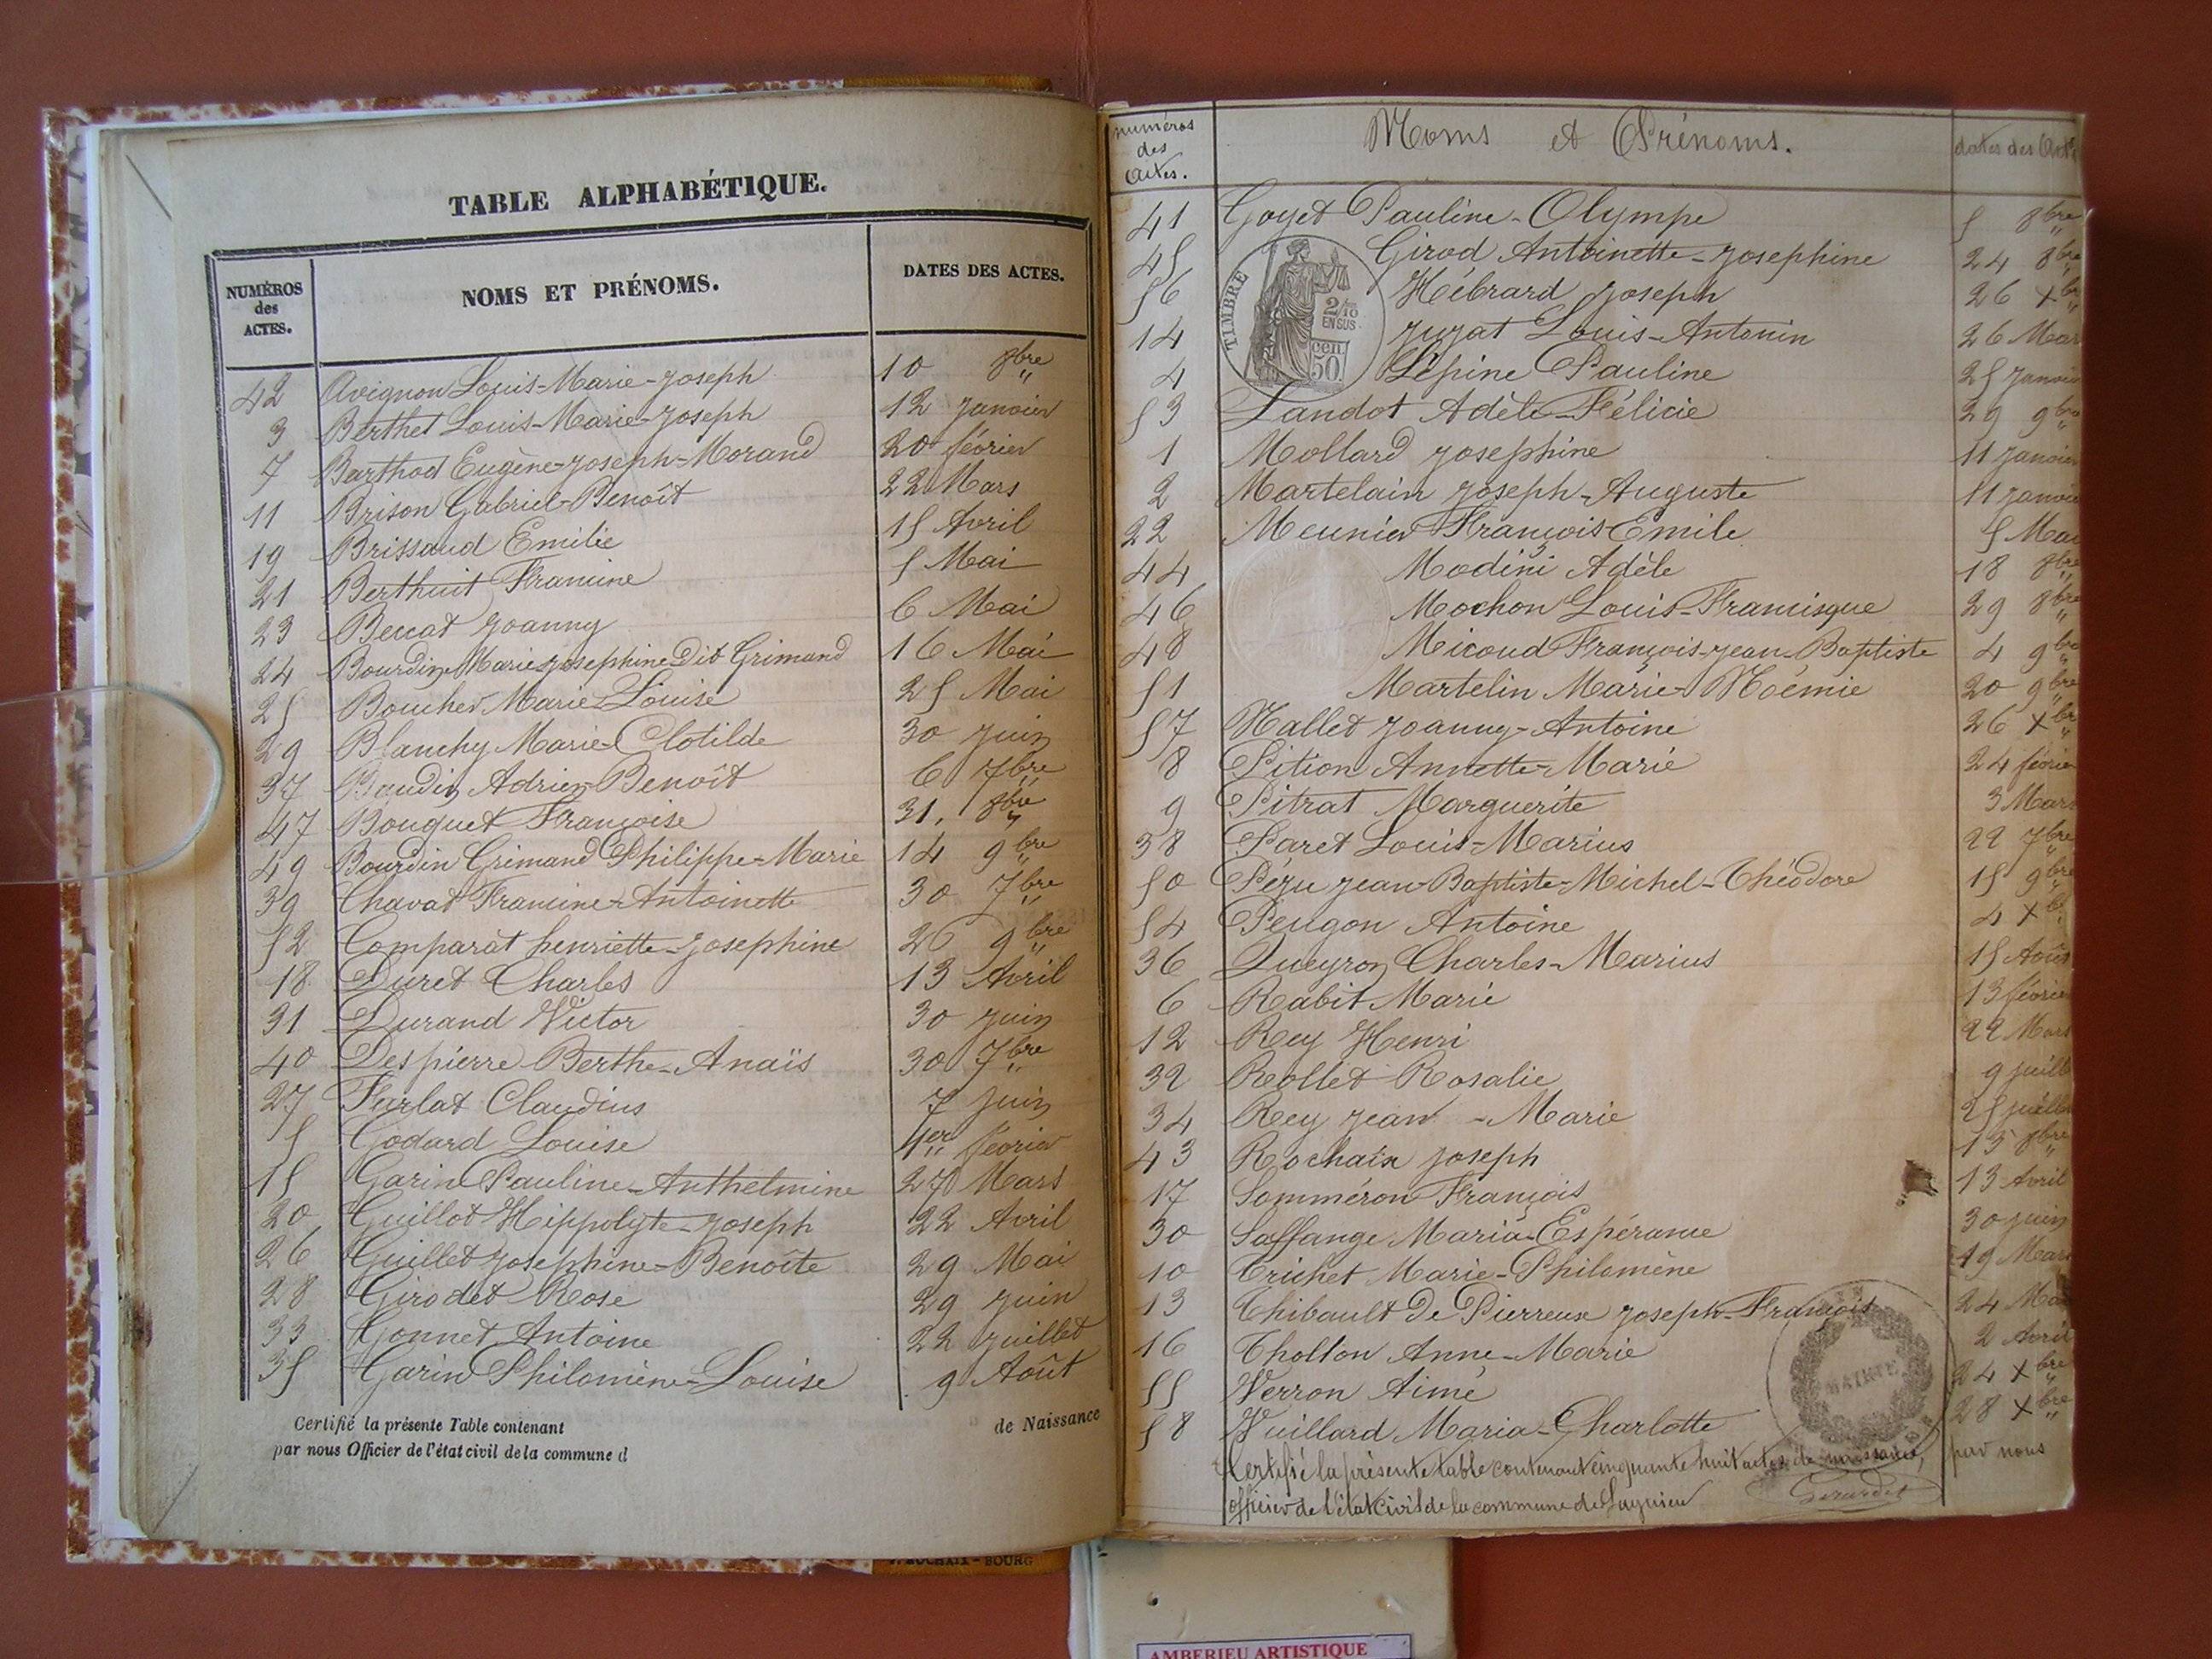 TABLE ALPHABÉTIQUE.
NUMÉROS des ACTES. NOMS ET PRÉNOMS. DATES DES ACTES.
42 Avignon Louis-Marie-Joseph 10 8bre
3 Berthet Louis-Marie-Joseph 12 Janvier
7 Barthod Eugène-Joseph-Morand 20 février
11 Brison Gabriel-Benoît 22 Mars
19 Brissaud Emilie 15 Avril
21 Berthuit Francine 5 Mai
23 Beccat Joanny 6 Mai
24 Bourdin Marie Josephine Dit Grimand 16 Mai
25 Boucher Marie Louise 25 Mai
29 Blanchy Marie-Clotilde 30 Juin
37 Baudin Adrien Benoît 6 7bre
47 Bouquet Françoise 31. 8bre
49 Bourdin Grimand Philippe-Marie 14 9bre
39 Chavat Francine-Antoinette 30 7bre
52 Comparat henriette-Josephine 26 9bre
18 Duret Charles 13 Avril
31 Durand Victor 30 Juin
40 Despierre Berthe-Anaïs 30 7bre
27 Furlat Claudius 7 Juin
5 Godard Louise 1er février
15 Garin Pauline-Anthelmine 27 Mars
20 Guillot Hippolyte-Joseph 22 Avril
26 Guillet Josephine-Benoîte 29 Mai
28 Girodet Rose 29 Juin
33 Gonnet Antoine 22 Juillet
35 Garin Philomène-Louise 9 Août
Certifié la présente Table contenant de Naissance
par nous Officier de l'état civil de la commune d
numéros des Actes. Noms et Prénoms. dates des Actes
41 Goyet Pauline-Olympe 5 8bre
45 Girod Antoinette-Josephine 24 8bre
56 Hébrard Joseph 26 Xbre
14 Jujat Louis-Antonin 26 Mar
4 Lépine Pauline 25 Janvier
TIMBRE
2/10 EN SUS
50 cen.
53 Landot Adèle-Félicie 29 9bre
1 Mollard Josephine 11 Janvier
2 Martelain Joseph-Auguste 11 Janvie
22 Meunier François Emile 5 Mai
44 Modini Adèle 18 8bre
46 Mochon Louis-Francisque 29 8bre
48 Micoud François-Jean-Baptiste 4 9bre
51 Martelin Marie-Noémie 20 9bre
57 Nallet Joanny-Antoine 26 Xbr
8 Pition Annette-Marie 24 février
9 Pitrat Marguerite 3 Mars
38 Paret Louis-Marius 22 7bre
50 Pézu Jean-Baptiste-Michel-Théodore 15 9bre
54 Peugon Antoine 4 Xb
36 Queyron Charles-Marius 15 Août
6 Rabit Marie 13 février
12 Rey Henri 22 Mars
32 Rollet Rosalie 9 Juill
34 Rey Jean-Marie 25 Juill
43 Rochaix Joseph 13 8bre
17 Somméron François 13 Avril
30 Saffange Maria-Espérance 30 Juin
10 Trichet Marie-Philomène 19 Mars
13 Thibault De Pierreux Joseph-François 24 Ma
16 Thollon Anne-Marie 2 Avril
55 Verron Aimé 24 Xbre
58 Vuillard Maria-Charlotte 28 Xbre
MAIRIE
Certifié la présente table contenant cinquante huit actes de naissance, par nous
officier de l'état civil de la commune de Lagnieu
ROCHAIX - BOURG
AMBERIEU ARTISTIQUE